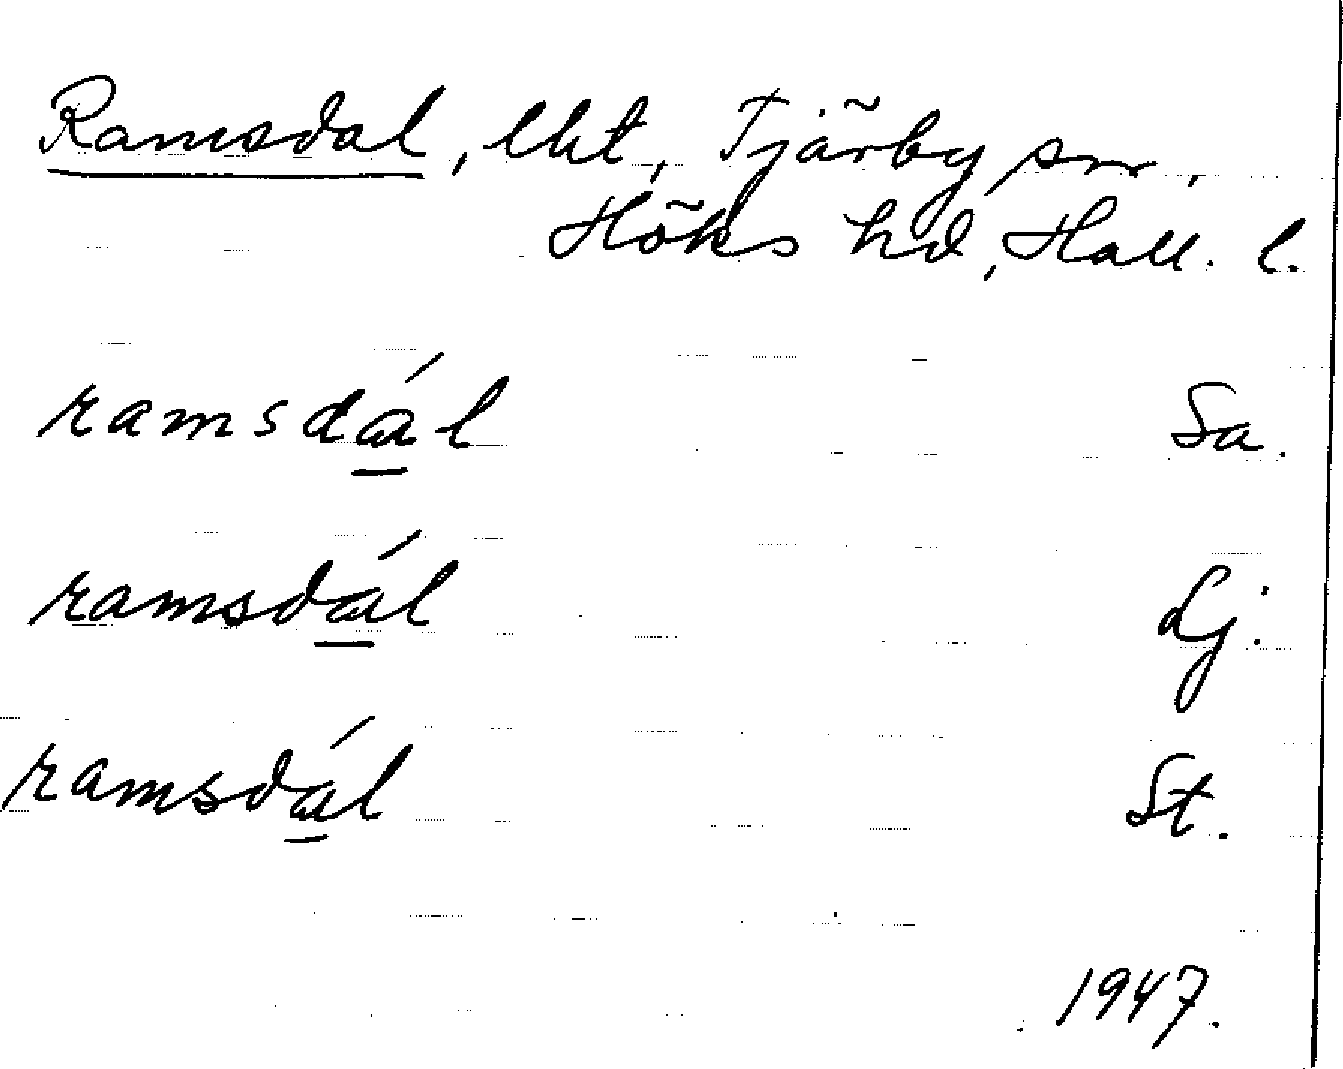 Ramsdal, lht, Tjärby sn,
Höks hd, Hall. l.
ramsdál Sa.
ramsdál Lj.
ramsdál St.
1947.